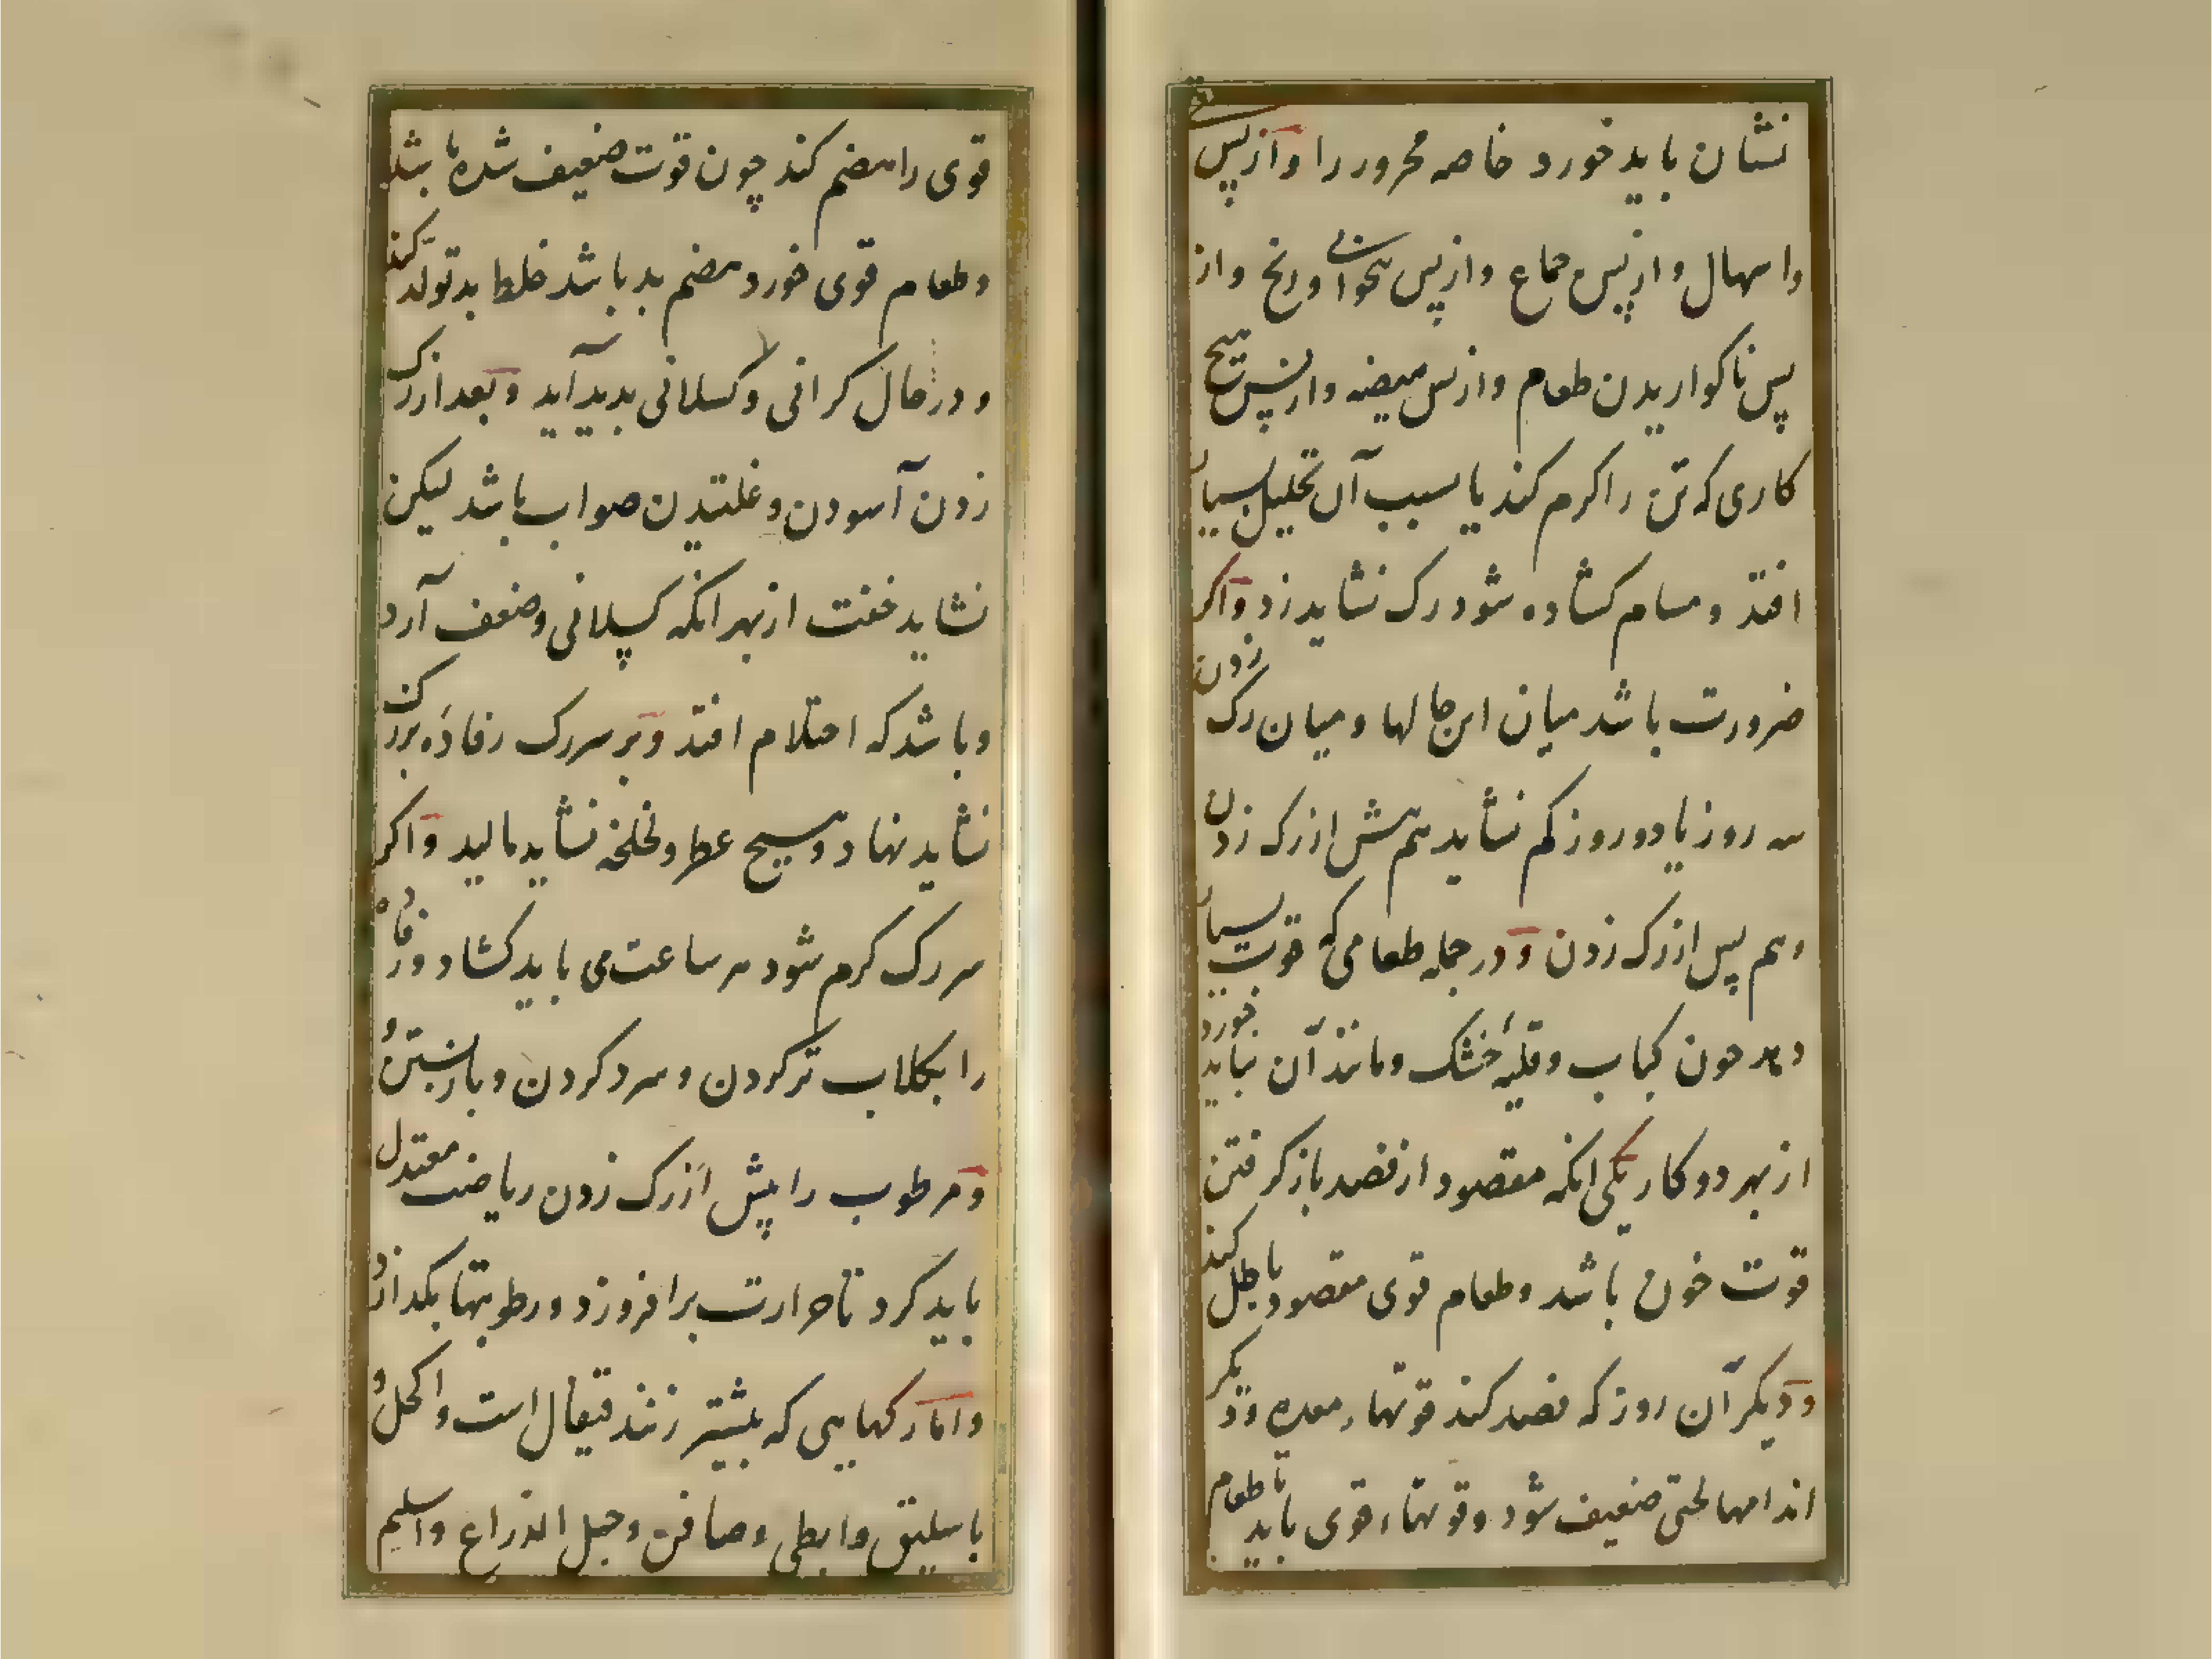 نشان باید خورد خاصه محرور را وازپس
واسهال وازپس جماع وازپس بیخوابی ورنج واز
پس ناکواریدن طعام وازپس هیضه وازپس هیچ
کاری که تن را کرم کند یا بسبب آن تحلیل بسیار
افتد ومسام کشاده شود رک نشاید زد واکر
ضرورت باشد میان این حالها ومیان رک زدن
سه روز یا دو روز کم نشاید هم پیش از رک زدن
وهم پس از رک زدن ودر جمله طعامی که قوت بسیار
دهد چون کباب وقلیهٔ خشک ومانند آن نباید خورد
از بهر دو کار یکی انکه مقصود از فصد بازکرفتن
قوت خون باشد وطعام قوی مقصود باطل کند
ودیکر آن روز که فصد کند قوتهاء معده ودیکر
اندامها لختی ضعیف شود وقوتهاء قوی باید تا طعام
قوی را هضم کند چون قوت ضعیف شده باشد
وطعام قوی خورد هضم بد باشد خلط بد تولد کند
ودرحال کرانی وکسلانی بدید آید وبعد از رک
زدن آسودن وغلتیدن صواب باشد لیکن
نشاید خفت از بهر انکه کسلانی وضعف آرد
وباشد که احتلام افتد وبر سر رک رفادهٔ بزرک
نشاید نهاد وهیچ عطر ولخلخه نشاید مالید واکر
سر رک کرم شود هر ساعت می باید کشاد ورفاده
را بکلاب تر کردن وسرد کردن وباز بستن و
ومرطوب را پیش از رک زدن ریاضت معتدل
باید کرد تا حرارت برافروزد ورطوبتها بکدازد
واما رکهایی که بیشتر زنند قیفال است واکحل و
باسلیق وابطی وصافن وحبل الذراع واسیلم